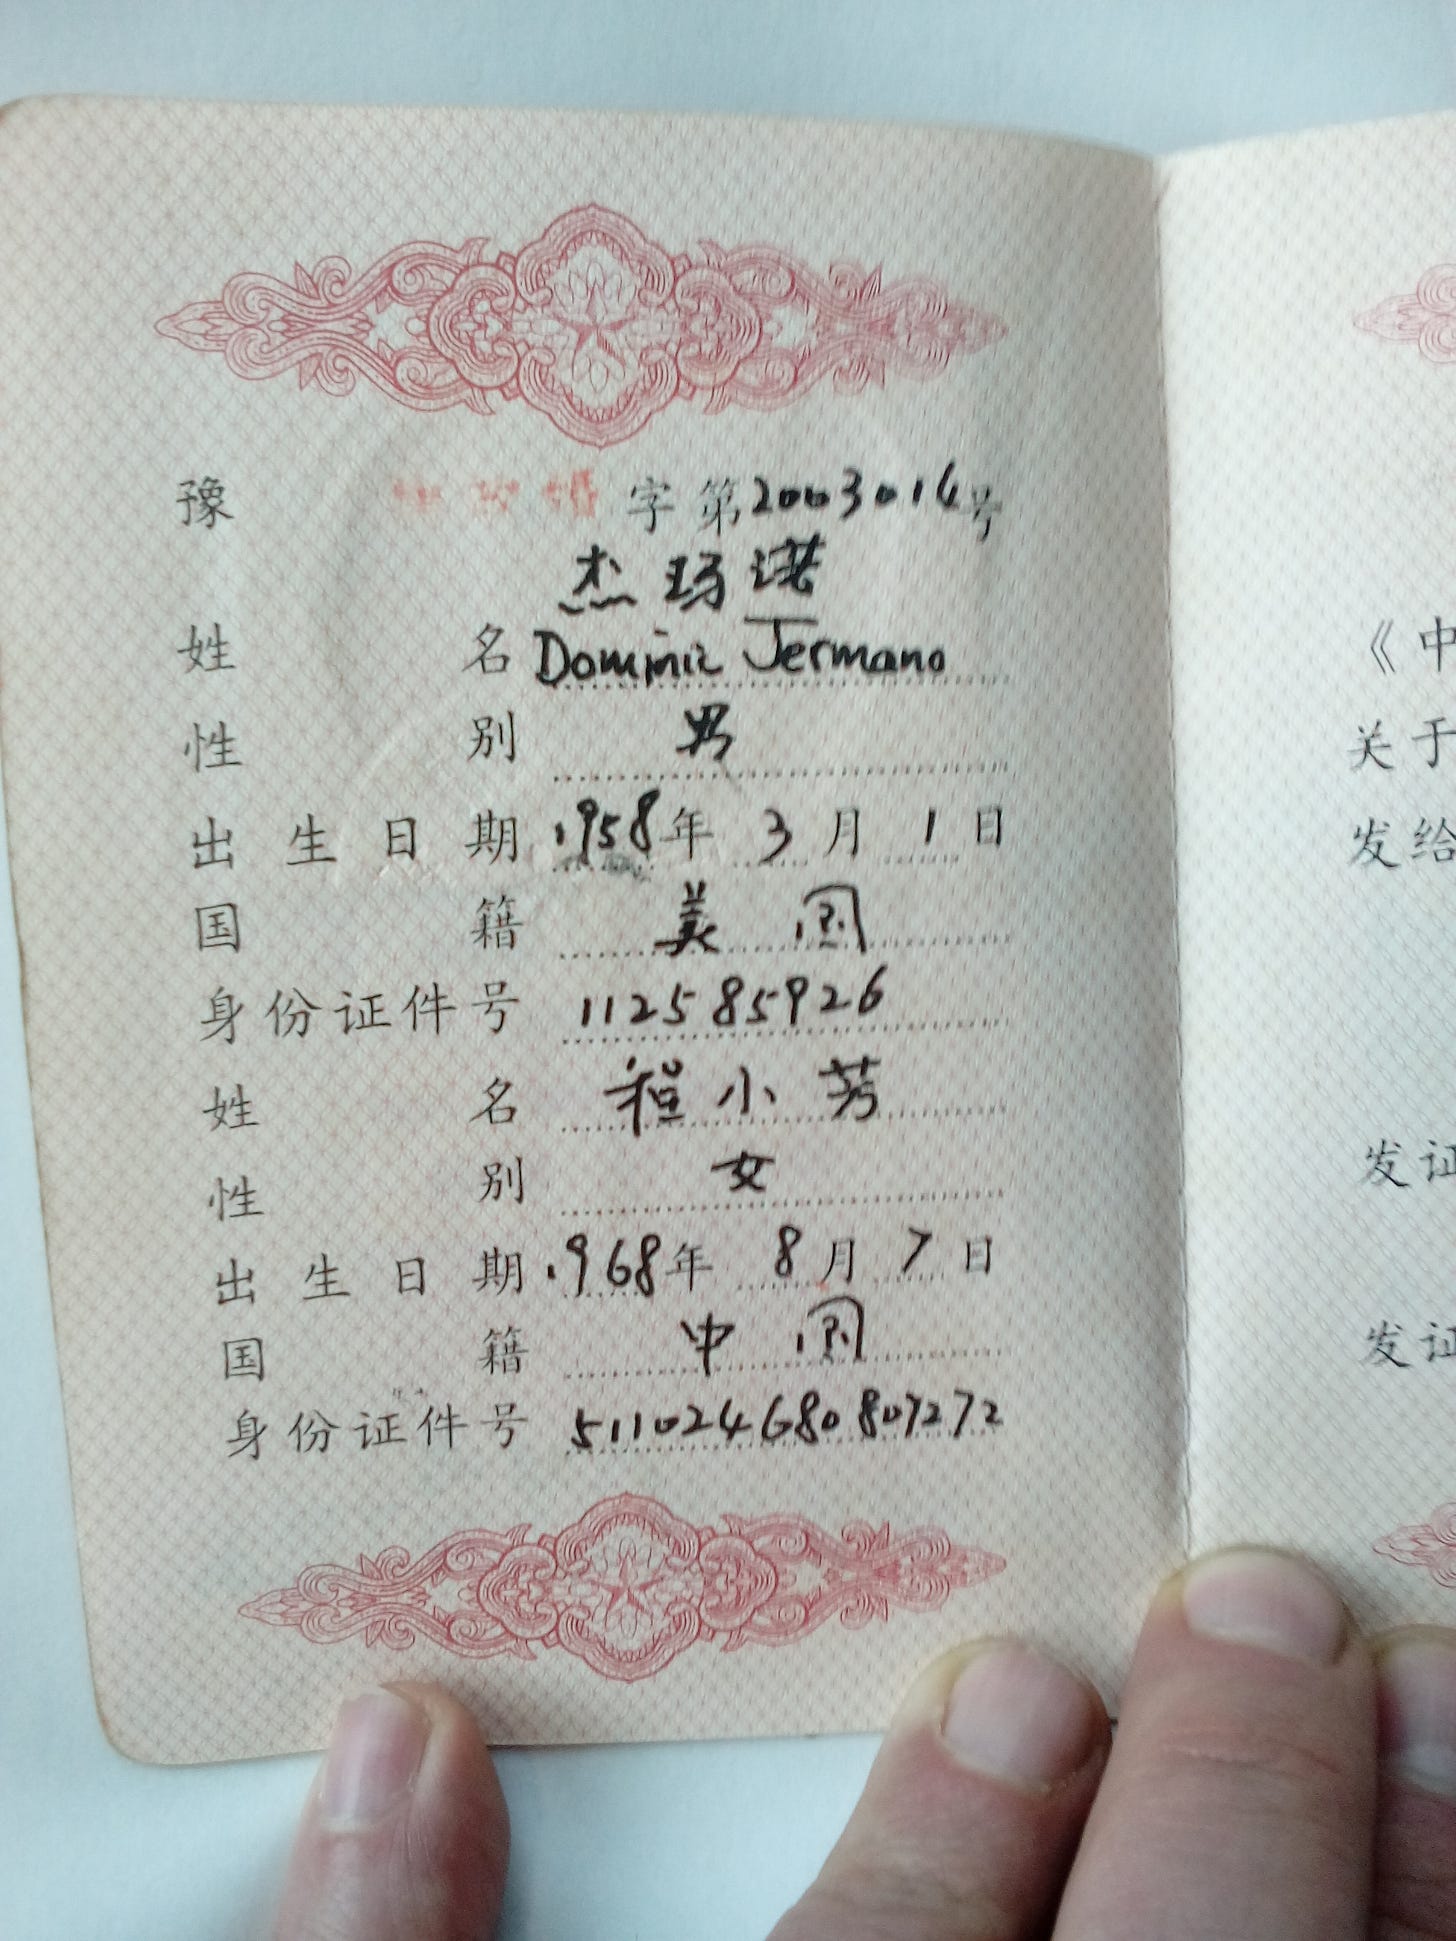 豫 民政婚 字第2003014号
杰玛诺
姓名 Dominic Jermano
性别 男
出生日期 1958年3月1日
国籍 美国
身份证件号 112585926
姓名 程小芳
性别 女
出生日期 1968年8月7日
国籍 中国
身份证件号 511024680807272
《中
关于
发给
发证
发证